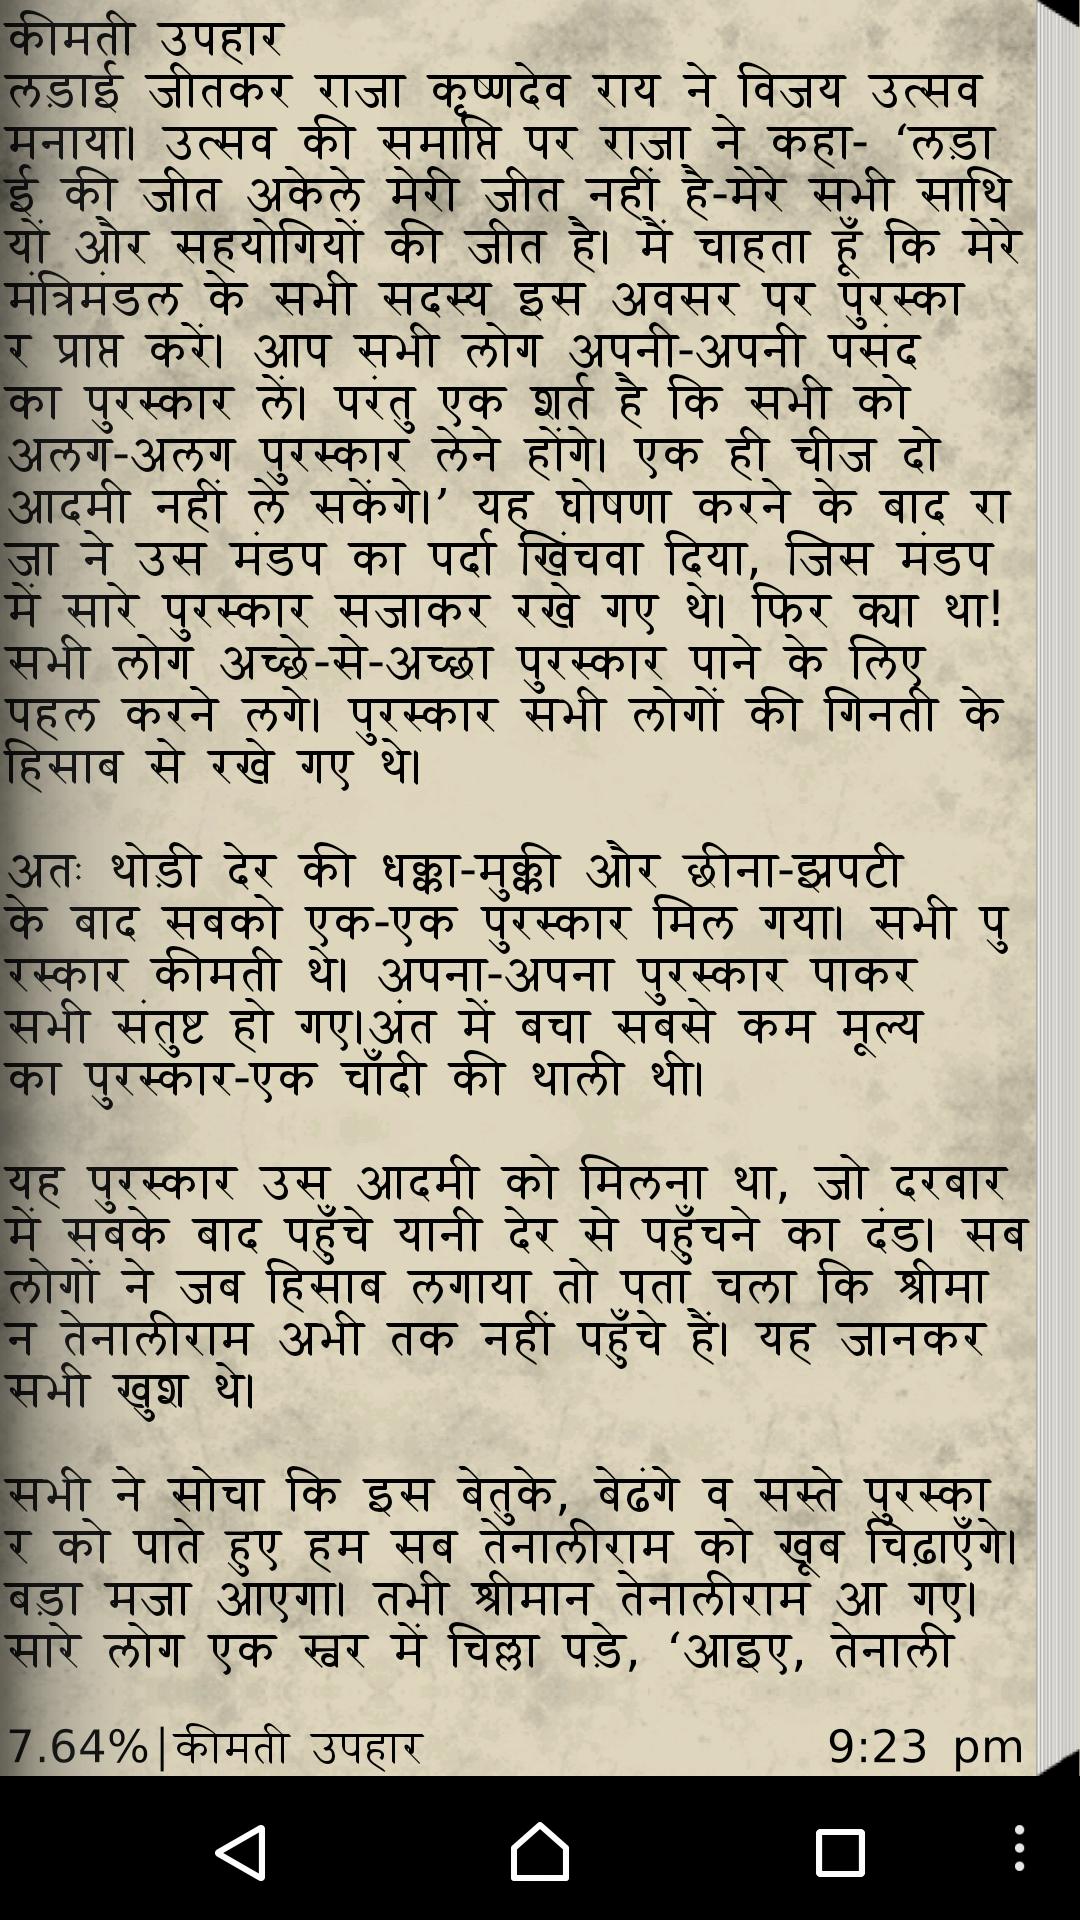 कीमती उपहार
लड़ाई जीतकर राजा कृष्णदेव राय ने विजय उत्सव
मनाया। उत्सव की समाप्ति पर राजा ने कहा- ‘लड़ा
ई की जीत अकेले मेरी जीत नहीं है-मेरे सभी साथि
यों और सहयोगियों की जीत है। मैं चाहता हूँ कि मेरे
मंत्रिमंडल के सभी सदस्य इस अवसर पर पुरस्का
र प्राप्त करें। आप सभी लोग अपनी-अपनी पसंद
का पुरस्कार लें। परंतु एक शर्त है कि सभी को
अलग-अलग पुरस्कार लेने होंगे। एक ही चीज दो
आदमी नहीं ले सकेंगे।’ यह घोषणा करने के बाद रा
जा ने उस मंडप का पर्दा खिंचवा दिया, जिस मंडप
में सारे पुरस्कार सजाकर रखे गए थे। फिर क्या था!
सभी लोग अच्छे-से-अच्छा पुरस्कार पाने के लिए
पहल करने लगे। पुरस्कार सभी लोगों की गिनती के
हिसाब से रखे गए थे।
अतः थोड़ी देर की धक्का-मुक्की और छीना-झपटी
के बाद सबको एक-एक पुरस्कार मिल गया। सभी पु
रस्कार कीमती थे। अपना-अपना पुरस्कार पाकर
सभी संतुष्ट हो गए।अंत में बचा सबसे कम मूल्य
का पुरस्कार-एक चाँदी की थाली थी।
यह पुरस्कार उस आदमी को मिलना था, जो दरबार
में सबके बाद पहुँचे यानी देर से पहुँचने का दंड। सब
लोगों ने जब हिसाब लगाया तो पता चला कि श्रीमा
न तेनालीराम अभी तक नहीं पहुँचे हैं। यह जानकर
सभी खुश थे।
सभी ने सोचा कि इस बेतुके, बेढंगे व सस्ते पुरस्का
र को पाते हुए हम सब तेनालीराम को खूब चिढ़ाएँगे।
बड़ा मजा आएगा। तभी श्रीमान तेनालीराम आ गए।
सारे लोग एक स्वर में चिल्ला पड़े, ‘आइए, तेनाली
7.64%|कीमती उपहार 9:23 pm